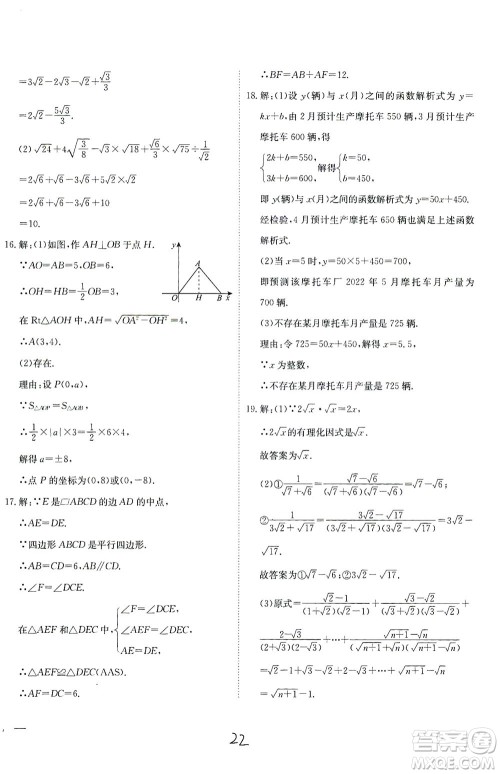 =3√2-2√3-√2+√3/3
=2√2-5√3/3.
(2)√24+4√(3/8)-√3×√2+√3×2√3
=2√6+√6-√6-2√6+6
=10.
16.解:(1)如图,作AH⊥OB于点H.
∵AO=AB=5,OB=6,
∴OH=HB=1/2OB=3.
在Rt△AOH中,AH=√(OA²-OH²)
∴A(3,4).
(2)存在.
理由:设P(0,a),
∵S△AOP=S△AOB,
∴1/2×|a|×3=1/2×6×4,
解得a=±8.
∴点P的坐标为(0,8)或(0,-8).
17.解:∵E是▱ABCD的边AD的中点,
∴AE=DE.
∵四边形ABCD是平行四边形,
∴AB=CD=6,AB∥CD.
∴∠F=∠DCE.
在△AEF和△DEC中,
∴△AEF≌△DEC(AAS).
∴AF=DC=6.
y
A
O
H
B
x
∴BF=AB+AF=12.
18.解:(1)设y(辆)与x(月)之间的函数解析式为y=
kx+b,由2月预计生产摩托车550辆,3月预计生产
摩托车600辆,得
{2k+b=550, 3k+b=600, 解得{k=50, b=450.
即y(辆)与x(月)之间的函数解析式为y=50x+450.
经检验,4月预计生产摩托车月产量也满足此函数
解析式.
(2)当x=5时,y=50×5+450=700,
即预测该摩托车厂2022年5月摩托车月产量为
700辆.
(3)不存在某月摩托车月产量是725辆.
理由:令725=50x+450,解得x=5.5,
∵x为整数,
∴不存在某月摩托车月产量是725辆.
19.解:(1)∵2√x·√x=2x,
∴2√x的有理化因式为√x.
故答案为√x.
(2)①1/(√7+√6)=(√7-√6)/((√7+√6)(√7-√6))=√7-√6.
②1/(3√2+√17)=(3√2-√17)/((3√2+√17)(3√2-√17))=3√2-√17.
故答案为①√7-√6;②3√2-√17.
(3)原式=(√2-1)/((√2+1)(√2-1))+(√3-√2)/((√3+√2)(√3-√2))+
(2-√3)/((2+√3)(2-√3))+…+(√(n+1)-√n)/((√(n+1)+√n)(√(n+1)-√n))
=√2-1+√3-√2+2-√3+…+√(n+1)-√n
=√(n+1)-1.
22